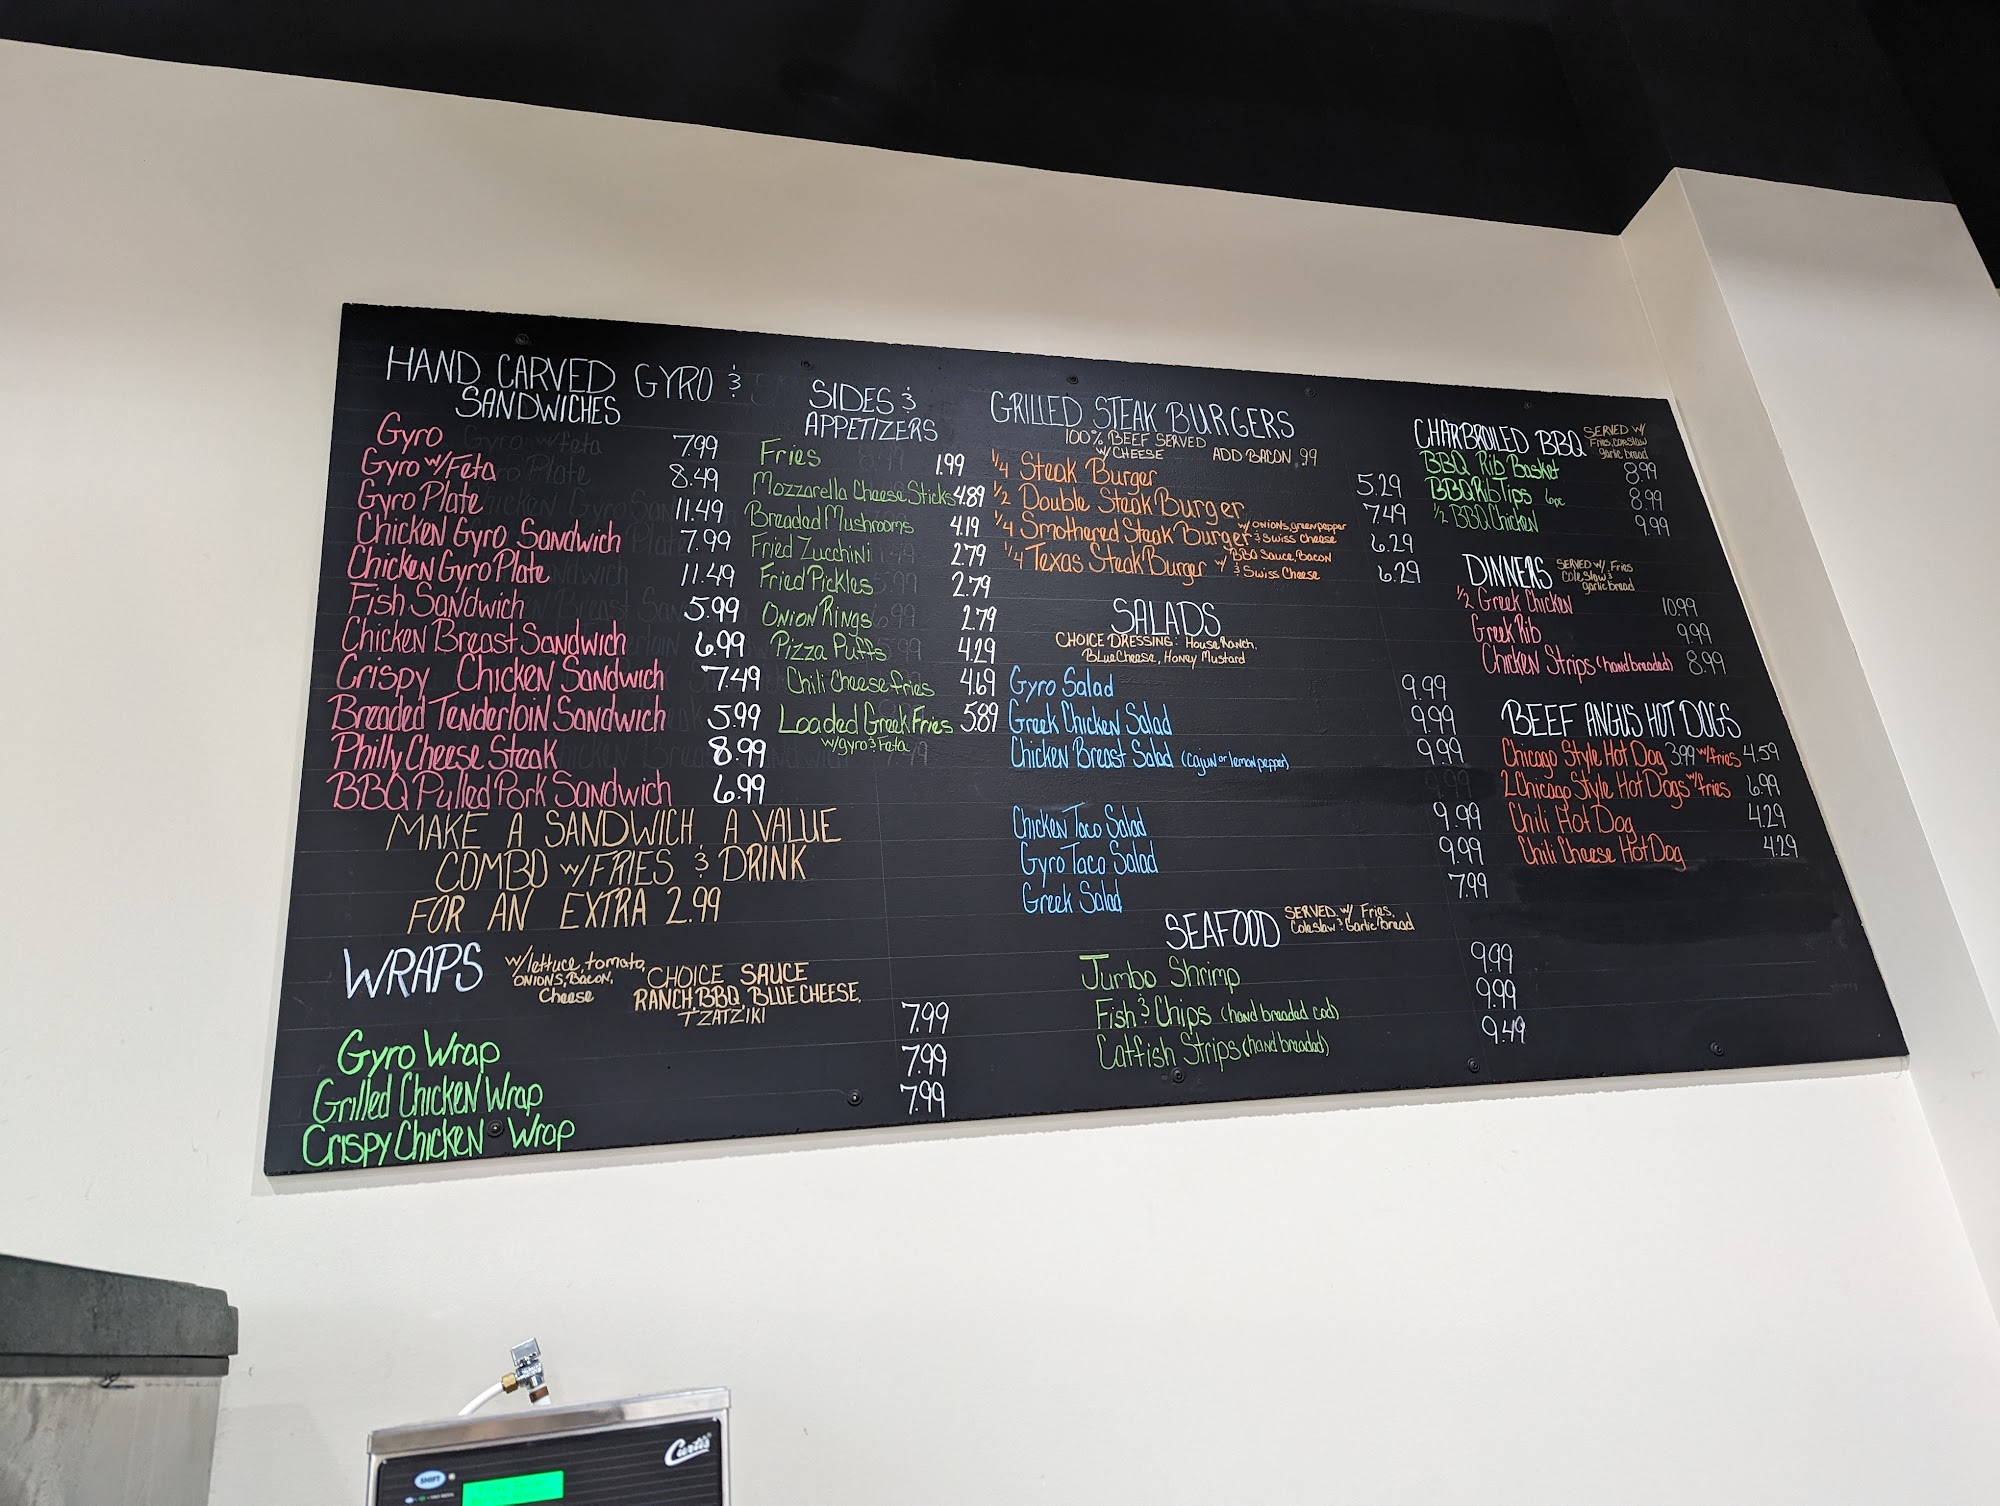 HAND CARVED GYRO &
SANDWICHES
Gyro 7.99
Gyro w/Feta 8.49
Gyro Plate 11.49
Chicken Gyro Sandwich 7.99
Chicken Gyro Plate 11.49
Fish Sandwich 5.99
Chicken Breast Sandwich 6.99
Crispy Chicken Sandwich 7.49
Breaded Tenderloin Sandwich 5.99
Philly Cheese Steak 8.99
BBQ Pulled Pork Sandwich 6.99
MAKE A SANDWICH A VALUE
COMBO w/FRIES & DRINK
FOR AN EXTRA 2.99
WRAPS
w/lettuce, tomato,
ONIONS, Bacon,
Cheese
CHOICE SAUCE
RANCH, BBQ, BLUE CHEESE,
TZATZIKI
Gyro Wrap 7.99
Grilled Chicken Wrap 7.99
Crispy Chicken Wrap 7.99
SIDES &
APPETIZERS
Fries 1.99
Mozzarella Cheese Sticks 4.89
Breaded Mushrooms 4.19
Fried Zucchini 2.79
Fried Pickles 2.79
Onion Rings 2.79
Pizza Puffs 4.29
Chili Cheese fries 4.69
Loaded Greek Fries 5.89
w/gyro & Feta
GRILLED STEAK BURGERS
100% BEEF SERVED
w/ CHEESE
ADD BACON .99
1/4 Steak Burger 5.29
1/2 Double Steak Burger 7.49
1/4 Smothered Steak Burger w/ onions, green pepper & Swiss Cheese 6.29
1/4 Texas Steak Burger w/ BBQ Sauce, Bacon & Swiss Cheese 6.29
SALADS
CHOICE DRESSING: House Ranch,
Blue Cheese, Honey Mustard
Gyro Salad 9.99
Greek Chicken Salad 9.99
Chicken Breast Salad (cajun or lemon pepper) 9.99
Chicken Taco Salad 9.99
Gyro Taco Salad 9.99
Greek Salad 7.99
SEAFOOD
SERVED w/ Fries,
Coleslaw & Garlic Bread
Jumbo Shrimp 9.99
Fish & Chips (hand breaded cod) 9.99
Catfish Strips (hand breaded) 9.49
CHARBROILED BBQ
SERVED w/
Fries, coleslaw
garlic bread
BBQ Rib Basket 8.99
BBQ Rib Tips 6pc 8.99
1/2 BBQ Chicken 9.99
DINNERS
SERVED w/ Fries
Coleslaw &
garlic bread
1/2 Greek Chicken 10.99
Greek Rib 9.99
Chicken Strips (hand breaded) 8.99
BEEF ANGUS HOT DOGS
Chicago Style Hot Dog 3.99 w/fries 4.59
2 Chicago Style Hot Dogs w/fries 6.99
Chili Hot Dog 4.29
Chili Cheese Hot Dog 4.29
Curtis
SHIFT